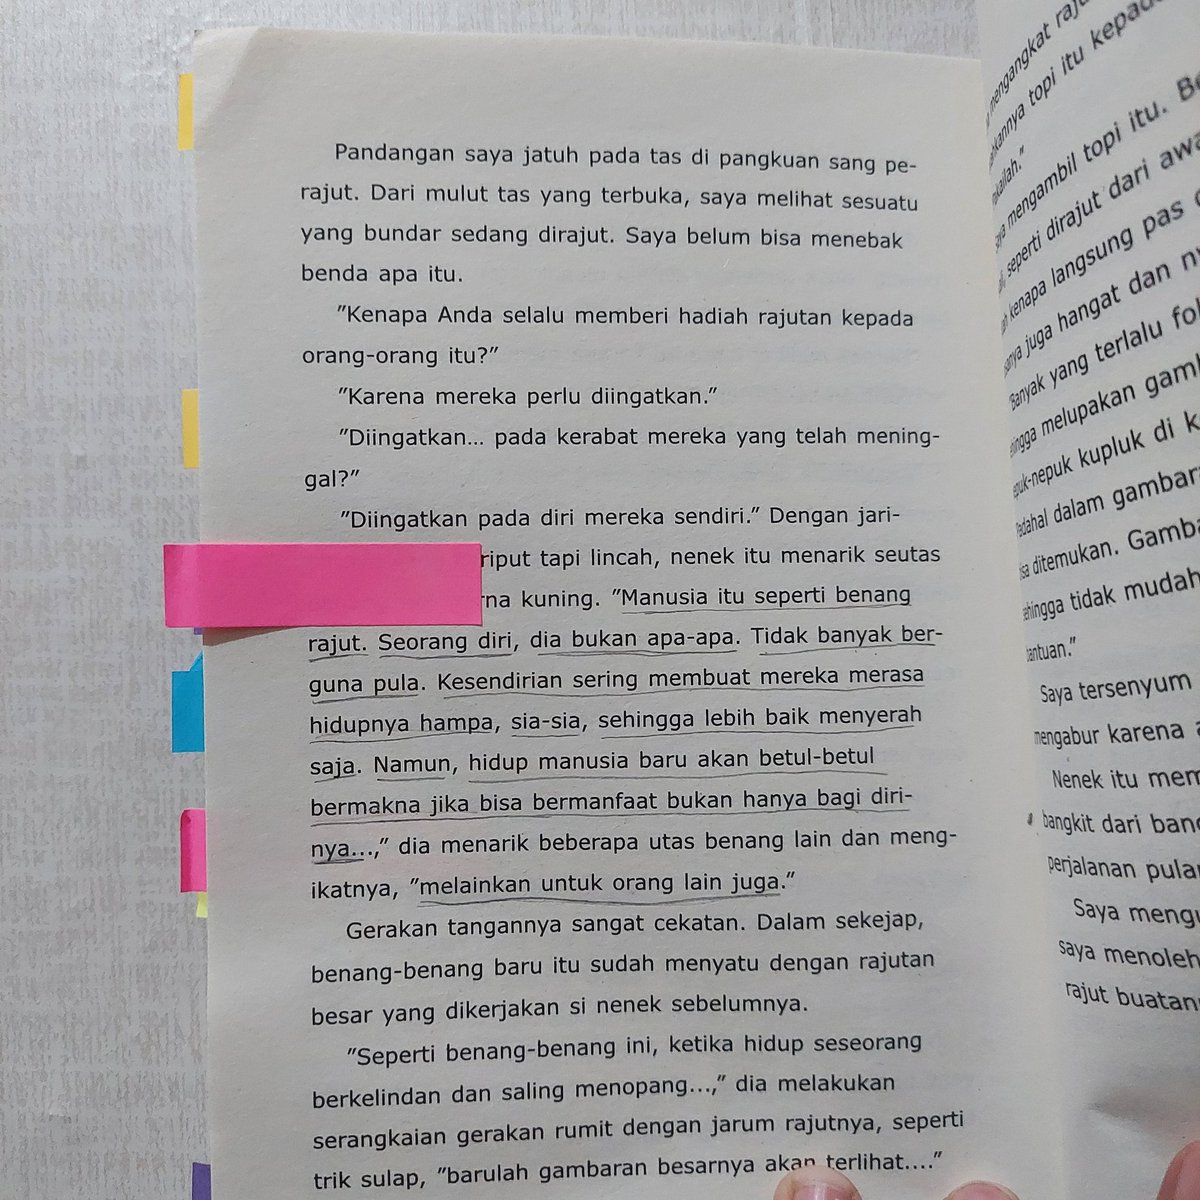 Pandangan saya jatuh pada tas di pangkuan sang pe-
rajut. Dari mulut tas yang terbuka, saya melihat sesuatu
yang bundar sedang dirajut. Saya belum bisa menebak
benda apa itu.
"Kenapa Anda selalu memberi hadiah rajutan kepada
orang-orang itu?"
"Karena mereka perlu diingatkan."
"Diingatkan... pada kerabat mereka yang telah mening-
gal?"
"Diingatkan pada diri mereka sendiri." Dengan jari-
riput tapi lincah, nenek itu menarik seutas
rna kuning. "Manusia itu seperti benang
rajut. Seorang diri, dia bukan apa-apa. Tidak banyak ber-
guna pula. Kesendirian sering membuat mereka merasa
hidupnya hampa, sia-sia, sehingga lebih baik menyerah
saja. Namun, hidup manusia baru akan betul-betul
bermakna jika bisa bermanfaat bukan hanya bagi diri-
nya...," dia menarik beberapa utas benang lain dan meng-
ikatnya, "melainkan untuk orang lain juga."
Gerakan tangannya sangat cekatan. Dalam sekejap,
benang-benang baru itu sudah menyatu dengan rajutan
besar yang dikerjakan si nenek sebelumnya.
"Seperti benang-benang ini, ketika hidup seseorang
berkelindan dan saling menopang...," dia melakukan
serangkaian gerakan rumit dengan jarum rajutnya, seperti
trik sulap, "barulah gambaran besarnya akan terlihat...."
mengangkat
topi itu kepada
mengambil topi itu.
seperti dirajut dari
kenapa langsung pas
juga hangat dan
"Banyak yang terlalu
melupakan
kupluk di
dalam
ditemukan.
tidak mudah
bantuan."
Saya tersenyum
mengabur karena
Nenek itu
bangkit dari
perjalanan
Saya
saya menoleh
rajut